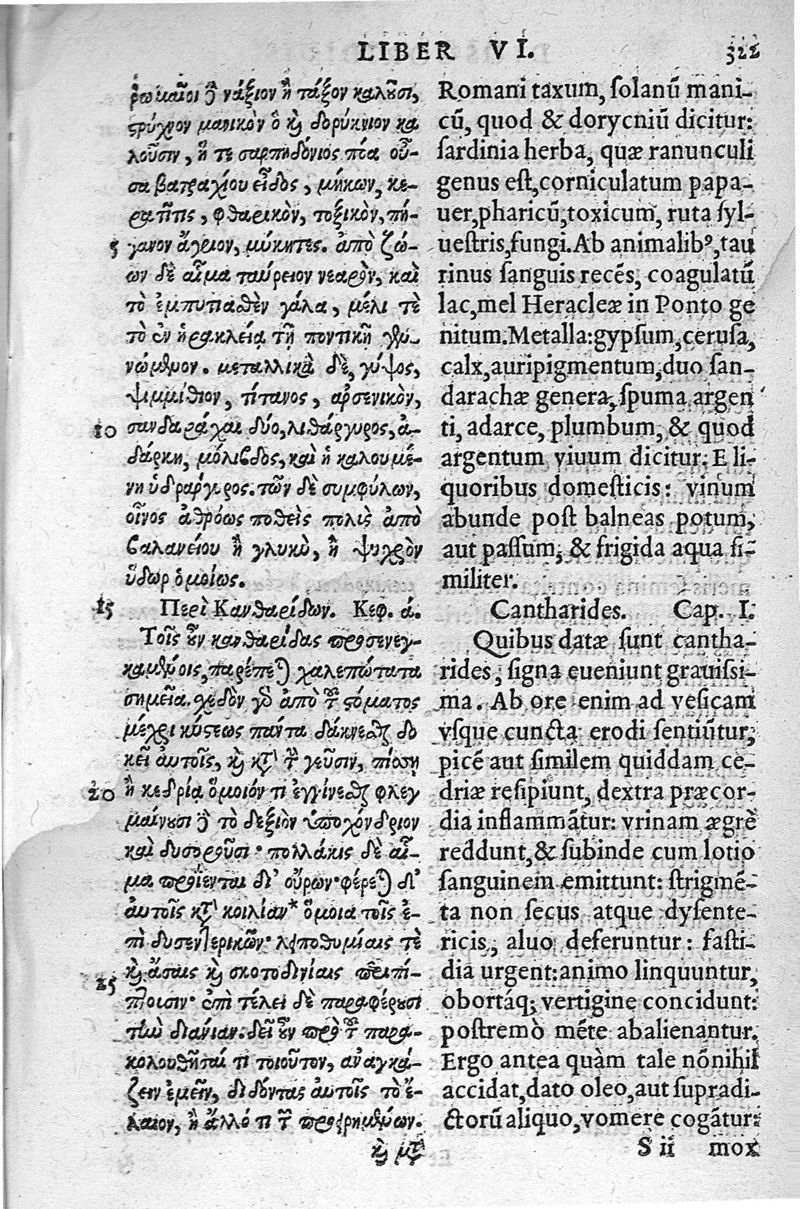 LIBER VI. 322
ρωμαῖοι ἢ νάξιον ἢ τάξον καλοῦσι,
στρύχνον μανικὸν ὃ καὶ δορύκνιον κα
λοῦσιν, ἥ τε σαρπηδόνιος πόα οὖ-
σα βατραχίου εἶδος, μήκων, κε-
ρατῖτις, φθαρικὸν, τοξικὸν, πή-
5 γανον ἄγριον, μύκητες. ἀπὸ ζώ-
ων δὲ αἷμα ταύρειον νεαρὸν, καὶ
τὸ ἐμπυτιαθὲν γάλα, μέλι τε
τὸ ἐν ἡρακλείᾳ τῇ ποντικῇ γεν-
νώμενον. μεταλλικὰ δὲ, γύψος,
ψιμμίθιον, τίτανος, ἀρσενικὸν,
10 σανδαράχαι δύο, λιθάργυρος, ἀ-
δάρκη, μόλιβδος, καὶ ἡ καλουμέ-
νη ὑδράργυρος. τῶν δὲ συμφύλων,
οἶνος ἀθρόως ποθεὶς πολὺς ἀπὸ
βαλανείου ἢ γλυκὺ, ἢ ψυχρὸν
ὕδωρ ὁμοίως.
15 Περὶ Κανθαρίδων. Κεφ. ά.
Τοῖς οὖν κανθαρίδας προσενεγ-
καμένοις, παρέπεται χαλεπώτατα
σημεῖα. σχεδὸν γὰρ ἀπὸ τοῦ στόματος
μέχρι κύστεως πάντα δάκνεσθαι δο
κεῖ αὐτοῖς, καὶ κατὰ τὴν γεῦσιν, πίσσῃ
20 ἢ κεδρίᾳ ὅμοιόν τι ἐγγίνεσθαι φλεγ
μαίνουσι δὲ τὸ δεξιὸν ὑποχόνδριον
καὶ δυσουροῦσι· πολλάκις δὲ αἷ-
μα προΐενται δι' οὔρων· φέρεται δι'
αὐτοῖς κατὰ κοιλίαν* ὅμοια τοῖς ἐ-
πὶ δυσεντερικῶν· λιποθυμίαις τε
25 καὶ ἄσαις καὶ σκοτοδινίαις περιπί-
πτουσιν· ἐπὶ τέλει δὲ παραφέρουσι
τὴν διάνιαν. δεῖ οὖν πρὸ τοῦ παρα-
κολουθῆσαί τι τοιοῦτον, ἀναγκά-
ζειν ἐμεῖν, διδόντας αὐτοῖς τὸ ἔ-
λαιον, ἢ ἄλλό τι τῶν προειρημένων.
καὶ μετὰ
Romani taxum, solanũ mani-
cũ, quod & dorycniũ dicitur:
sardinia herba, quæ ranunculi
genus est, corniculatum papa-
uer, pharicũ, toxicum, ruta syl-
uestris, fungi. Ab animalibꝰ, tau
rinus sanguis recẽs, coagulatũ
lac, mel Heracleæ in Ponto ge
nitum. Metalla: gypsum, cerusa,
calx, auripigmentum, duo san-
darachæ genera, spuma argen
ti, adarce, plumbum, & quod
argentum viuum dicitur. E li-
quoribus domesticis: vinum
abunde post balneas potum,
aut passum, & frigida aqua si-
militer.
Cantharides. Cap. I.
Quibus datæ sunt cantha-
rides, signa eueniunt grauissi-
ma. Ab ore enim ad vesicam
vsque cuncta erodi sentiũtur,
picẽ aut similem quiddam ce-
driæ resipiunt, dextra præcor-
dia inflammãtur: vrinam ægrè
reddunt, & subinde cum lotio
sanguinem emittunt: strigmẽ-
ta non secus atque dysente-
ricis, aluo deferuntur: fasti-
dia urgent: animo linquuntur,
obortáq; vertigine concidunt:
postremò mẽte abalienantur.
Ergo antea quàm tale nõnihil
accidat, dato oleo, aut supradi-
ctorũ aliquo, vomere cogãtur:
S ii mox